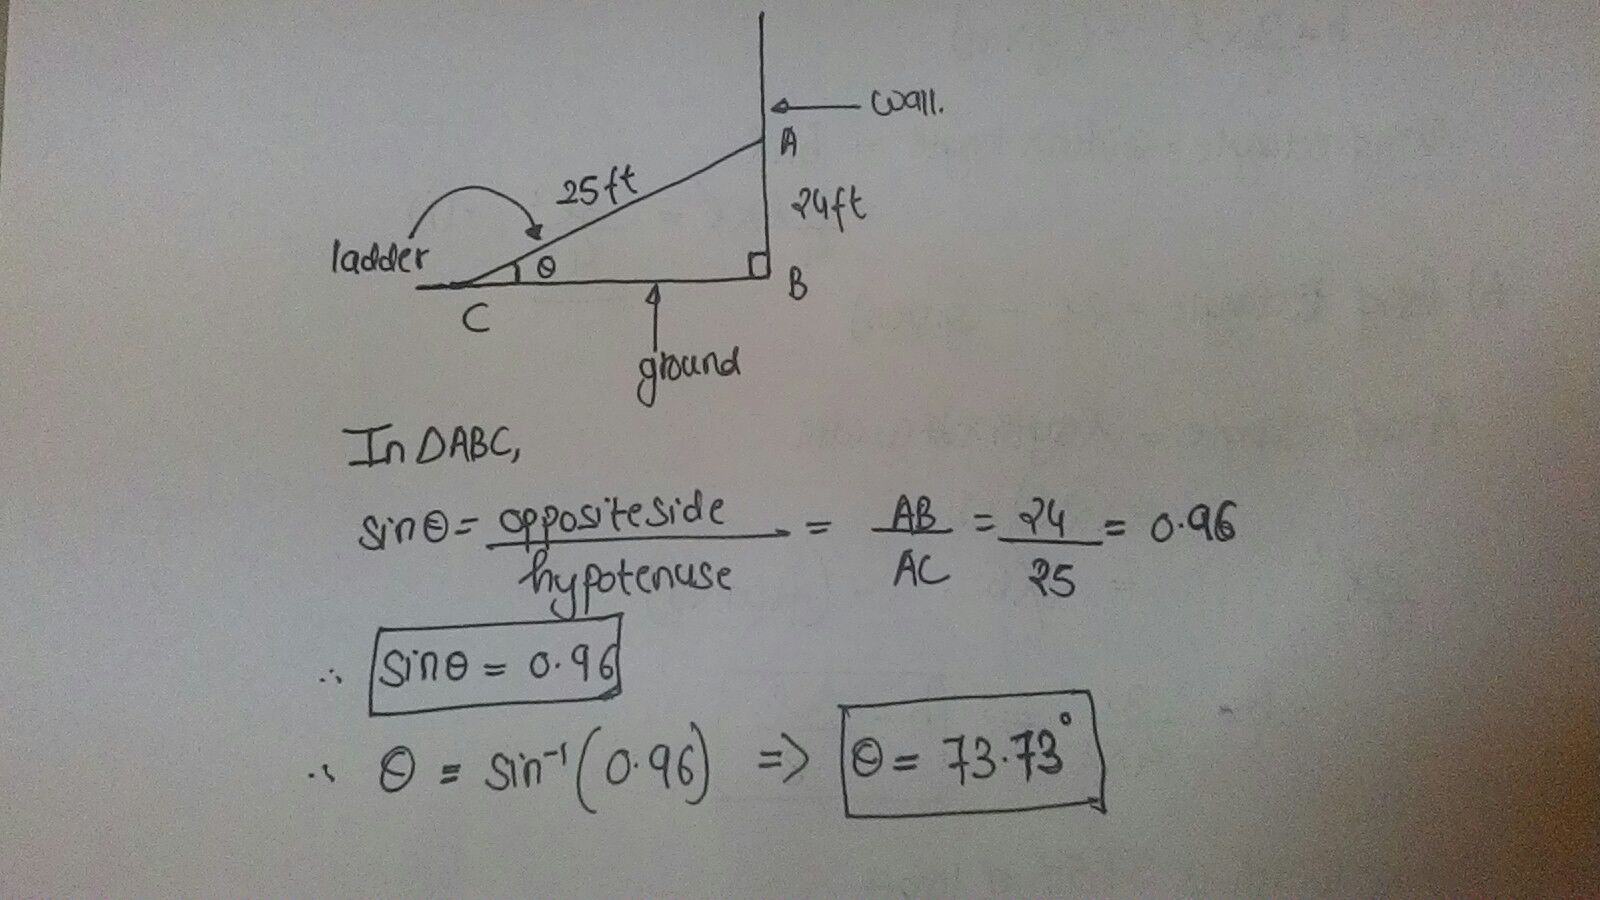 wall.
A
25ft
24ft
ladder
θ
B
C
ground
In ΔABC,
sinθ = opposite side / hypotenuse = AB / AC = 24 / 25 = 0.96
∴ sinθ = 0.96
∴ θ = sin⁻¹(0.96) => θ = 73.73°